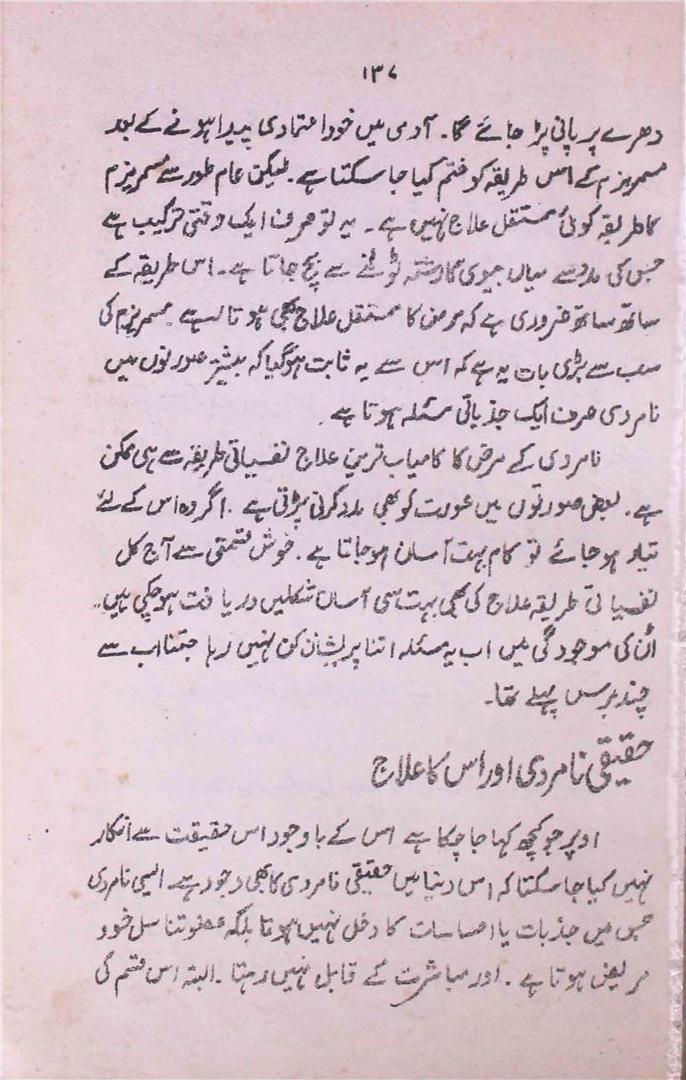 ۱۳۷
دھرے پر پانی پڑ جائے گا۔ آدمی میں خود اعتمادی پیدا ہونے کے بعد
مسمریزم کے اس طریقہ کو ختم کیا جا سکتا ہے۔ لیکن عام طور سے مسمریزم
کا طریقہ کوئی مستقل علاج نہیں ہے۔ یہ تو صرف ایک وقتی ترکیب ہے
جس کی مدد سے میاں بیوی کا رشتہ ٹوٹنے سے بچ جاتا ہے۔ اس طریقہ کے
ساتھ ساتھ ضروری ہے کہ مرض کا مستقل علاج بھی ہوتا رہے۔ مسمریزم کی
سب سے بڑی بات یہ ہے کہ اس سے یہ ثابت ہو گیا کہ بیشتر صورتوں میں
نامردی صرف ایک جذباتی مسئلہ ہوتا ہے۔
نامردی کے مرض کا کامیاب ترین علاج نفسیاتی طریقہ سے ہی ممکن
ہے۔ بعض صورتوں میں عورت کو بھی مدد کرنی پڑتی ہے۔ اگر وہ اس کے لئے
تیار ہو جائے تو کام بہت آسان ہو جاتا ہے۔ خوش قسمتی سے آج کل
نفسیاتی طریقہ علاج کی بھی بہت سی آسان شکلیں دریافت ہو چکی ہیں۔
اُن کی موجودگی میں اب یہ مسئلہ اتنا پریشان کن نہیں رہا جتنا اب سے
چند برس پہلے تھا۔
حقیقی نامردی اور اس کا علاج
اوپر جو کچھ کہا جا چکا ہے اس کے باوجود اس حقیقت سے انکار
نہیں کیا جا سکتا کہ اس دنیا میں حقیقی نامردی کا بھی وجود ہے ایسی نامردی
جس میں جذبات یا احساسات کا دخل نہیں ہوتا بلکہ عضو تناسل خود
مریض ہوتا ہے۔ اور مباشرت کے قابل نہیں رہتا۔ البتہ اس قسم کی